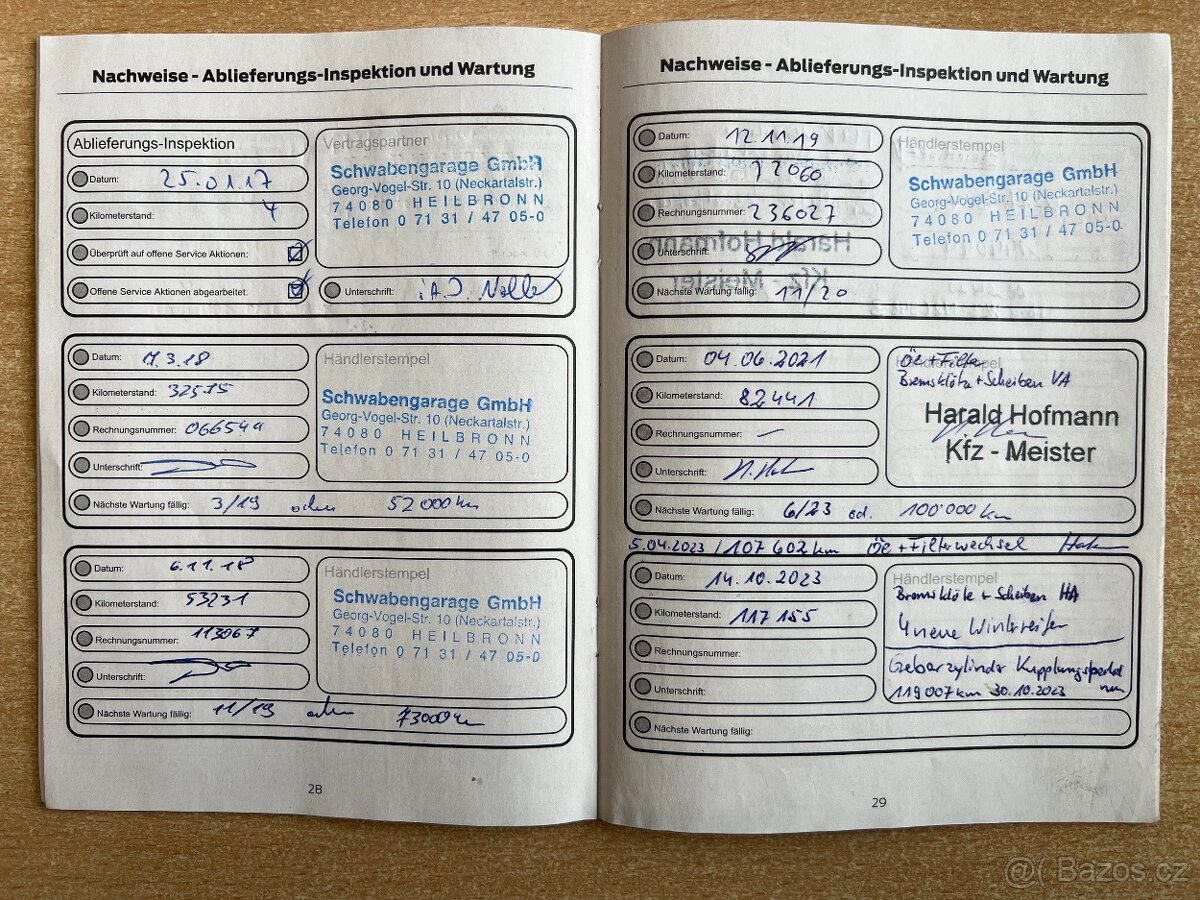 Nachweise - Ablieferungs-Inspektion und Wartung
Ablieferungs-Inspektion
Datum: 25.01.17
Kilometerstand: 4
Überprüft auf offene Service Aktionen:
Offene Service Aktionen abgearbeitet:
Vertragspartner
Schwabengarage GmbH
Georg-Vogel-Str. 10 (Neckartalstr.)
74080 HEILBRONN
Telefon 0 71 31 / 47 05-0
Unterschrift:
Datum: 3.18
Kilometerstand: 32515
Rechnungsnummer: 066544
Unterschrift:
Händlerstempel
Schwabengarage GmbH
Georg-Vogel-Str. 10 (Neckartalstr.)
74080 HEILBRONN
Telefon 0 71 31 / 47 05-0
Nächste Wartung fällig: 3/19 oder 52000 km
Datum: 6.11.18
Kilometerstand: 53231
Rechnungsnummer: 113067
Unterschrift:
Händlerstempel
Schwabengarage GmbH
Georg-Vogel-Str. 10 (Neckartalstr.)
74080 HEILBRONN
Telefon 0 71 31 / 47 05-0
Nächste Wartung fällig: 11/19 oder 73000 km
28
Nachweise - Ablieferungs-Inspektion und Wartung
Datum: 12.11.19
Kilometerstand: 72060
Rechnungsnummer: 236027
Unterschrift:
Nächste Wartung fällig: 11/20
Händlerstempel
Schwabengarage GmbH
Georg-Vogel-Str. 10 (Neckartalstr.)
74080 HEILBRONN
Telefon 0 71 31 / 47 05-0
Datum: 04.06.2021
Kilometerstand: 82441
Rechnungsnummer: –
Unterschrift:
Händlerstempel
Öl + Filter
Bremsklötze + Scheiben VA
Harald Hofmann
Kfz - Meister
Nächste Wartung fällig: 6/23 od. 100'000 km
5.04.2023 / 107 602 km Öl + Filterwechsel
Datum: 14.10.2023
Kilometerstand: 117155
Rechnungsnummer:
Unterschrift:
Händlerstempel
Bremsklötze + Scheiben HA
4 neue Winterreifen
Geberzylinder Kupplungspedal
neu
119 007 km 30.10.2023
Nächste Wartung fällig:
29
Bazoš.cz